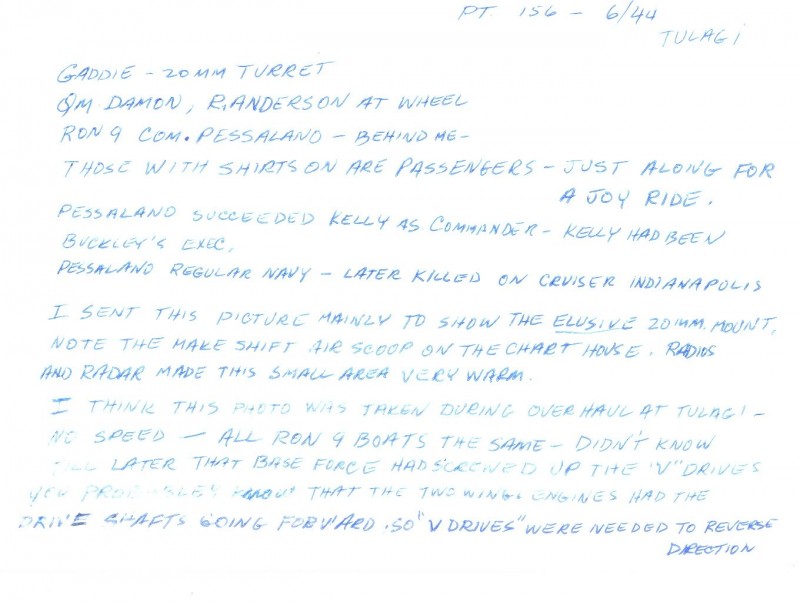 PT. 156 - 6/44
TULAGI
GADDIE - 20MM TURRET
QM DAMON, R. ANDERSON AT WHEEL
RON 9 COM. PESSALANO - BEHIND ME -
THOSE WITH SHIRTS ON ARE PASSENGERS - JUST ALONG FOR
A JOY RIDE.
PESSALAND SUCCEEDED KELLY AS COMMANDER - KELLY HAD BEEN
BUCKLEY'S EXEC.
PESSALANO REGULAR NAVY - LATER KILLED ON CRUISER INDIANAPOLIS
I SENT THIS PICTURE MAINLY TO SHOW THE ELUSIVE 20MM. MOUNT.
NOTE THE MAKE SHIFT AIR SCOOP ON THE CHART HOUSE. RADIOS
AND RADAR MADE THIS SMALL AREA VERY WARM.
I THINK THIS PHOTO WAS TAKEN DURING OVERHAUL AT TULAGI -
NO SPEED - ALL RON 9 BOATS THE SAME - DIDN'T KNOW
TILL LATER THAT BASE FORCE HAD SCREWED UP THE "V" DRIVES
YOU KNOW THAT THE TWO WING. ENGINES HAD THE
DRIVE SHAFTS GOING FORWARD. SO "V DRIVES" WERE NEEDED TO REVERSE
DIRECTION